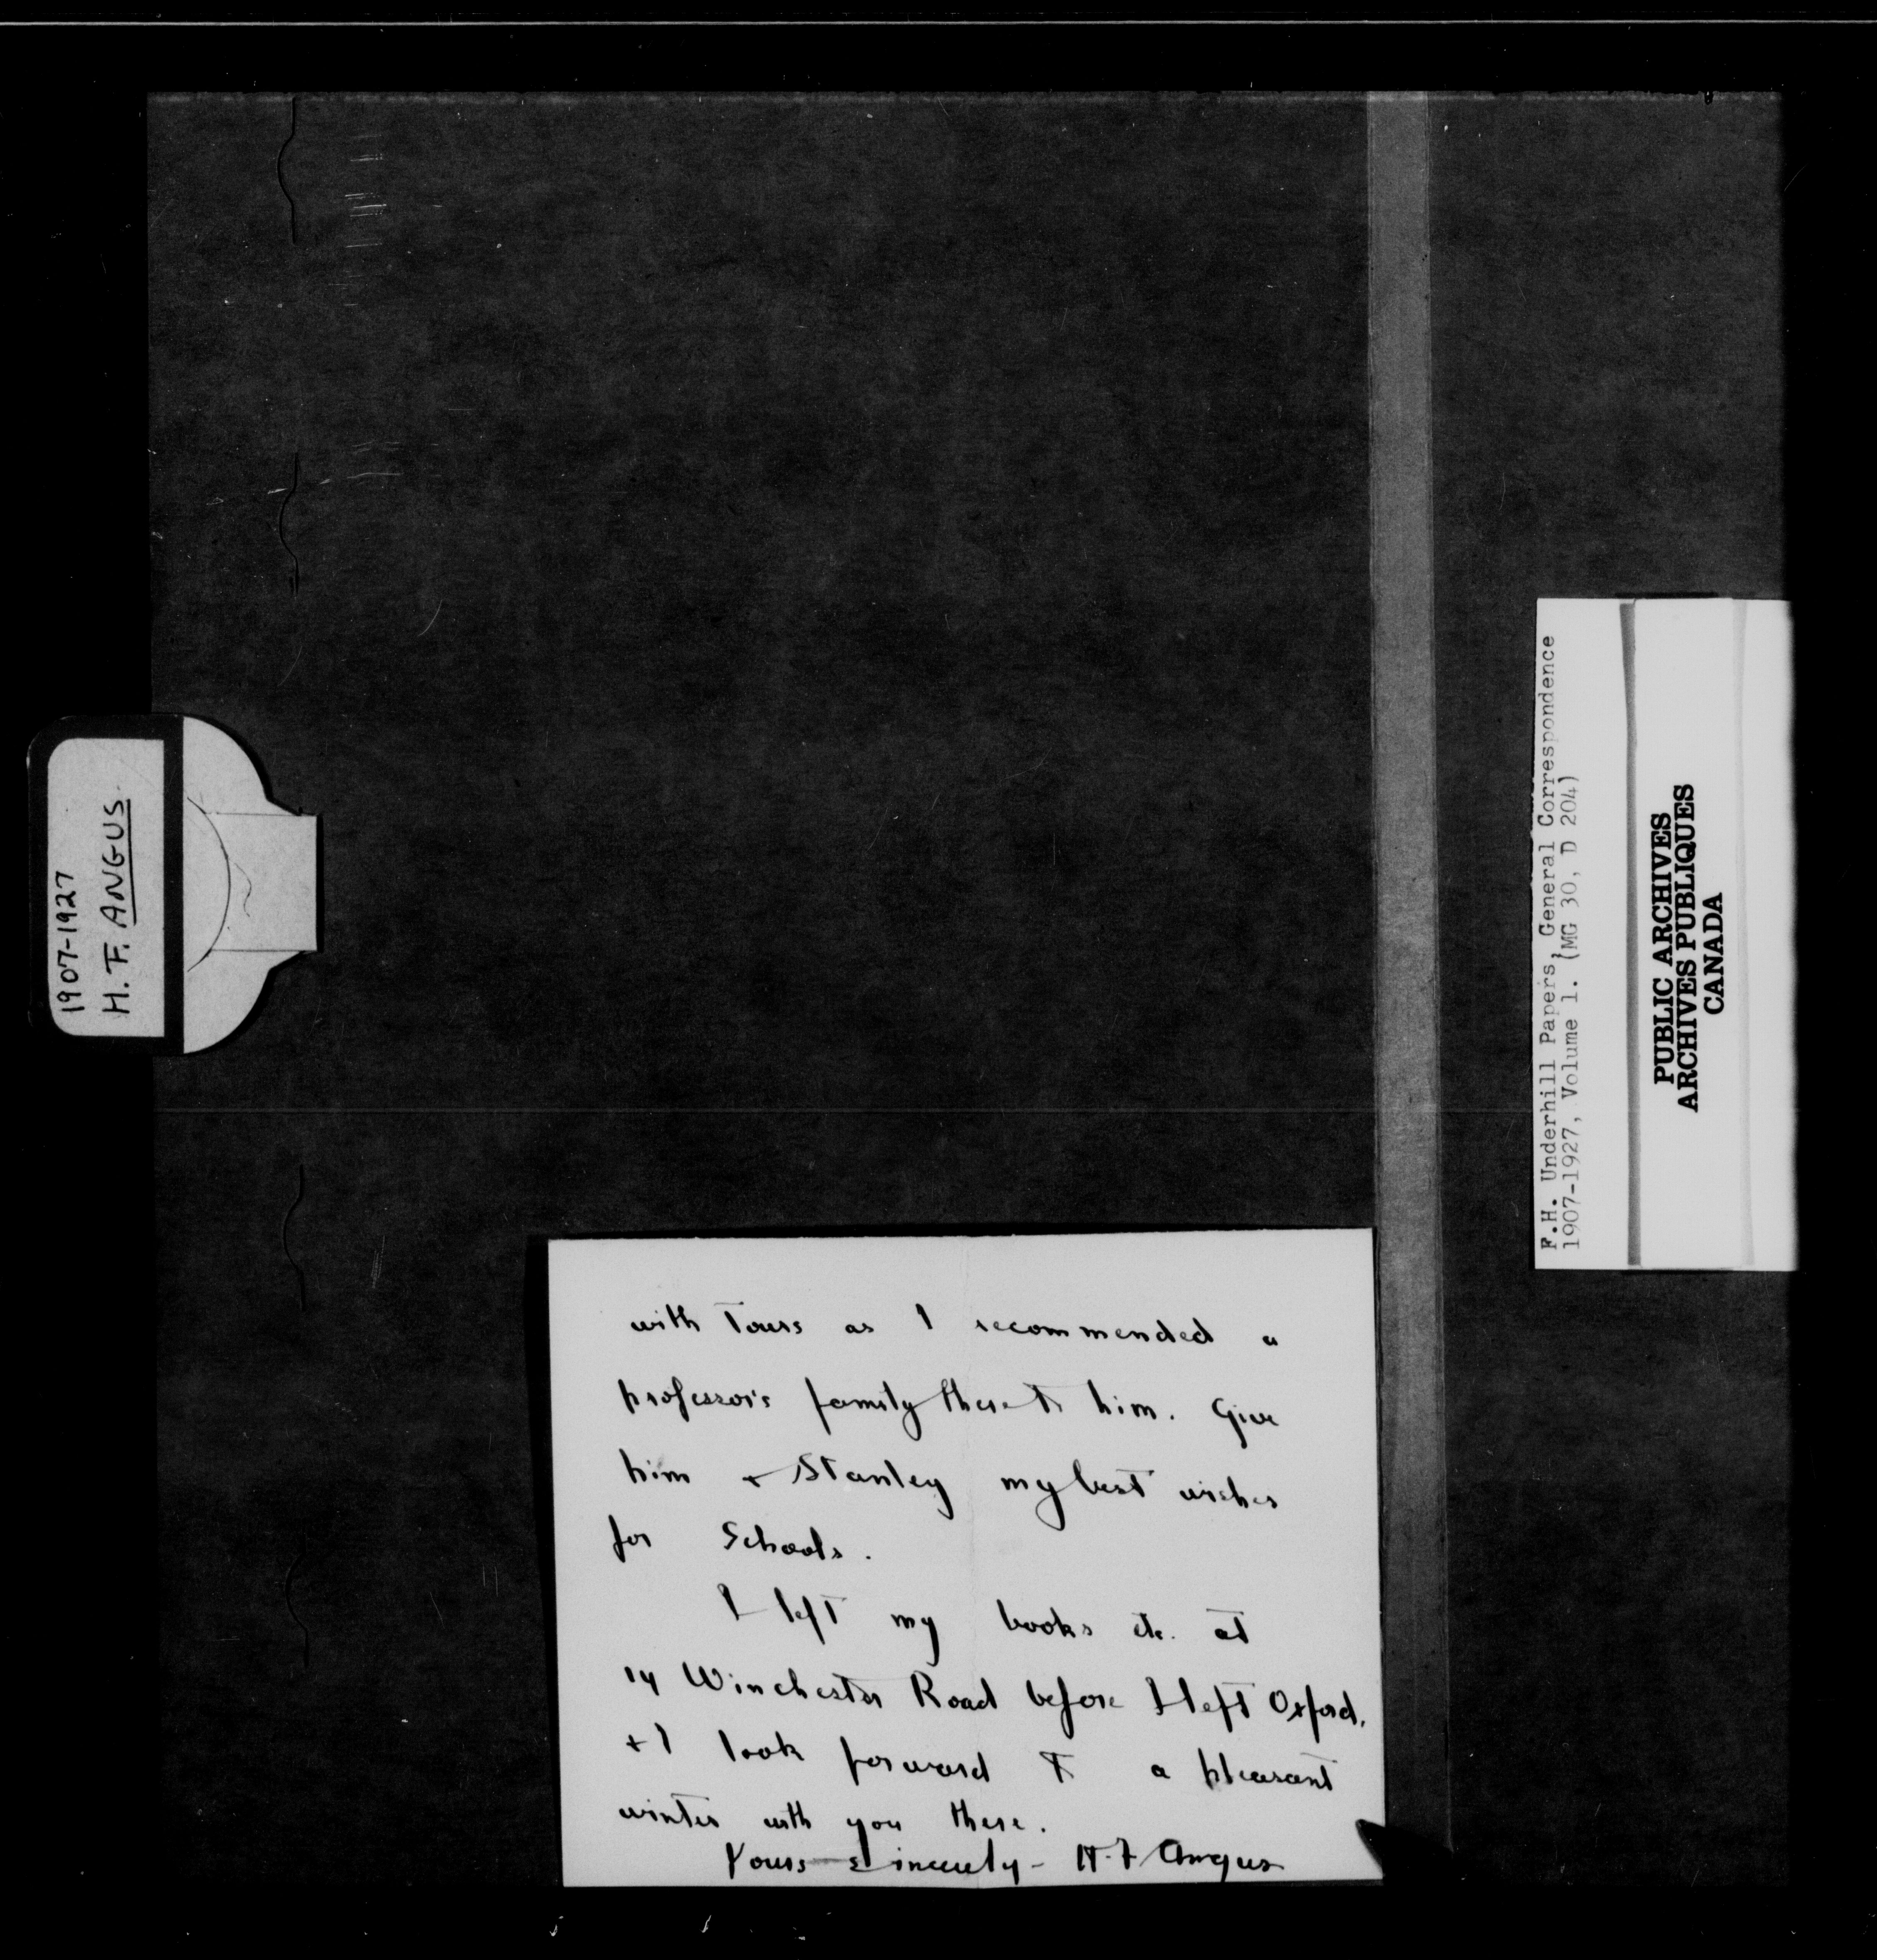 1907-1927
H. F. ANGUS.
with Tours as I recommended a
professor's family there to him. Give
him + Stanley my best wishes
for Schools.
I left my books etc. at
14 Winchester Road before I left Oxford,
+ I look forward to a pleasant
winter with you there.
Yours sincerely - H. F. Angus
F.H. Underhill Papers, General Correspondence
1907-1927, Volume 1. (MG 30, D 204)
PUBLIC ARCHIVES
ARCHIVES PUBLIQUES
CANADA